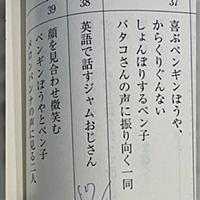 37
喜ぶペンギンぼうや、
からくりぐんない
しょんぼりするペン子
バタコさんの声に振り向く一同
38
英語で話すジャムおじさん
39
顔を見合わせ微笑む
ペンギンぼうやとペン子
ロンパンナの声に見る二人